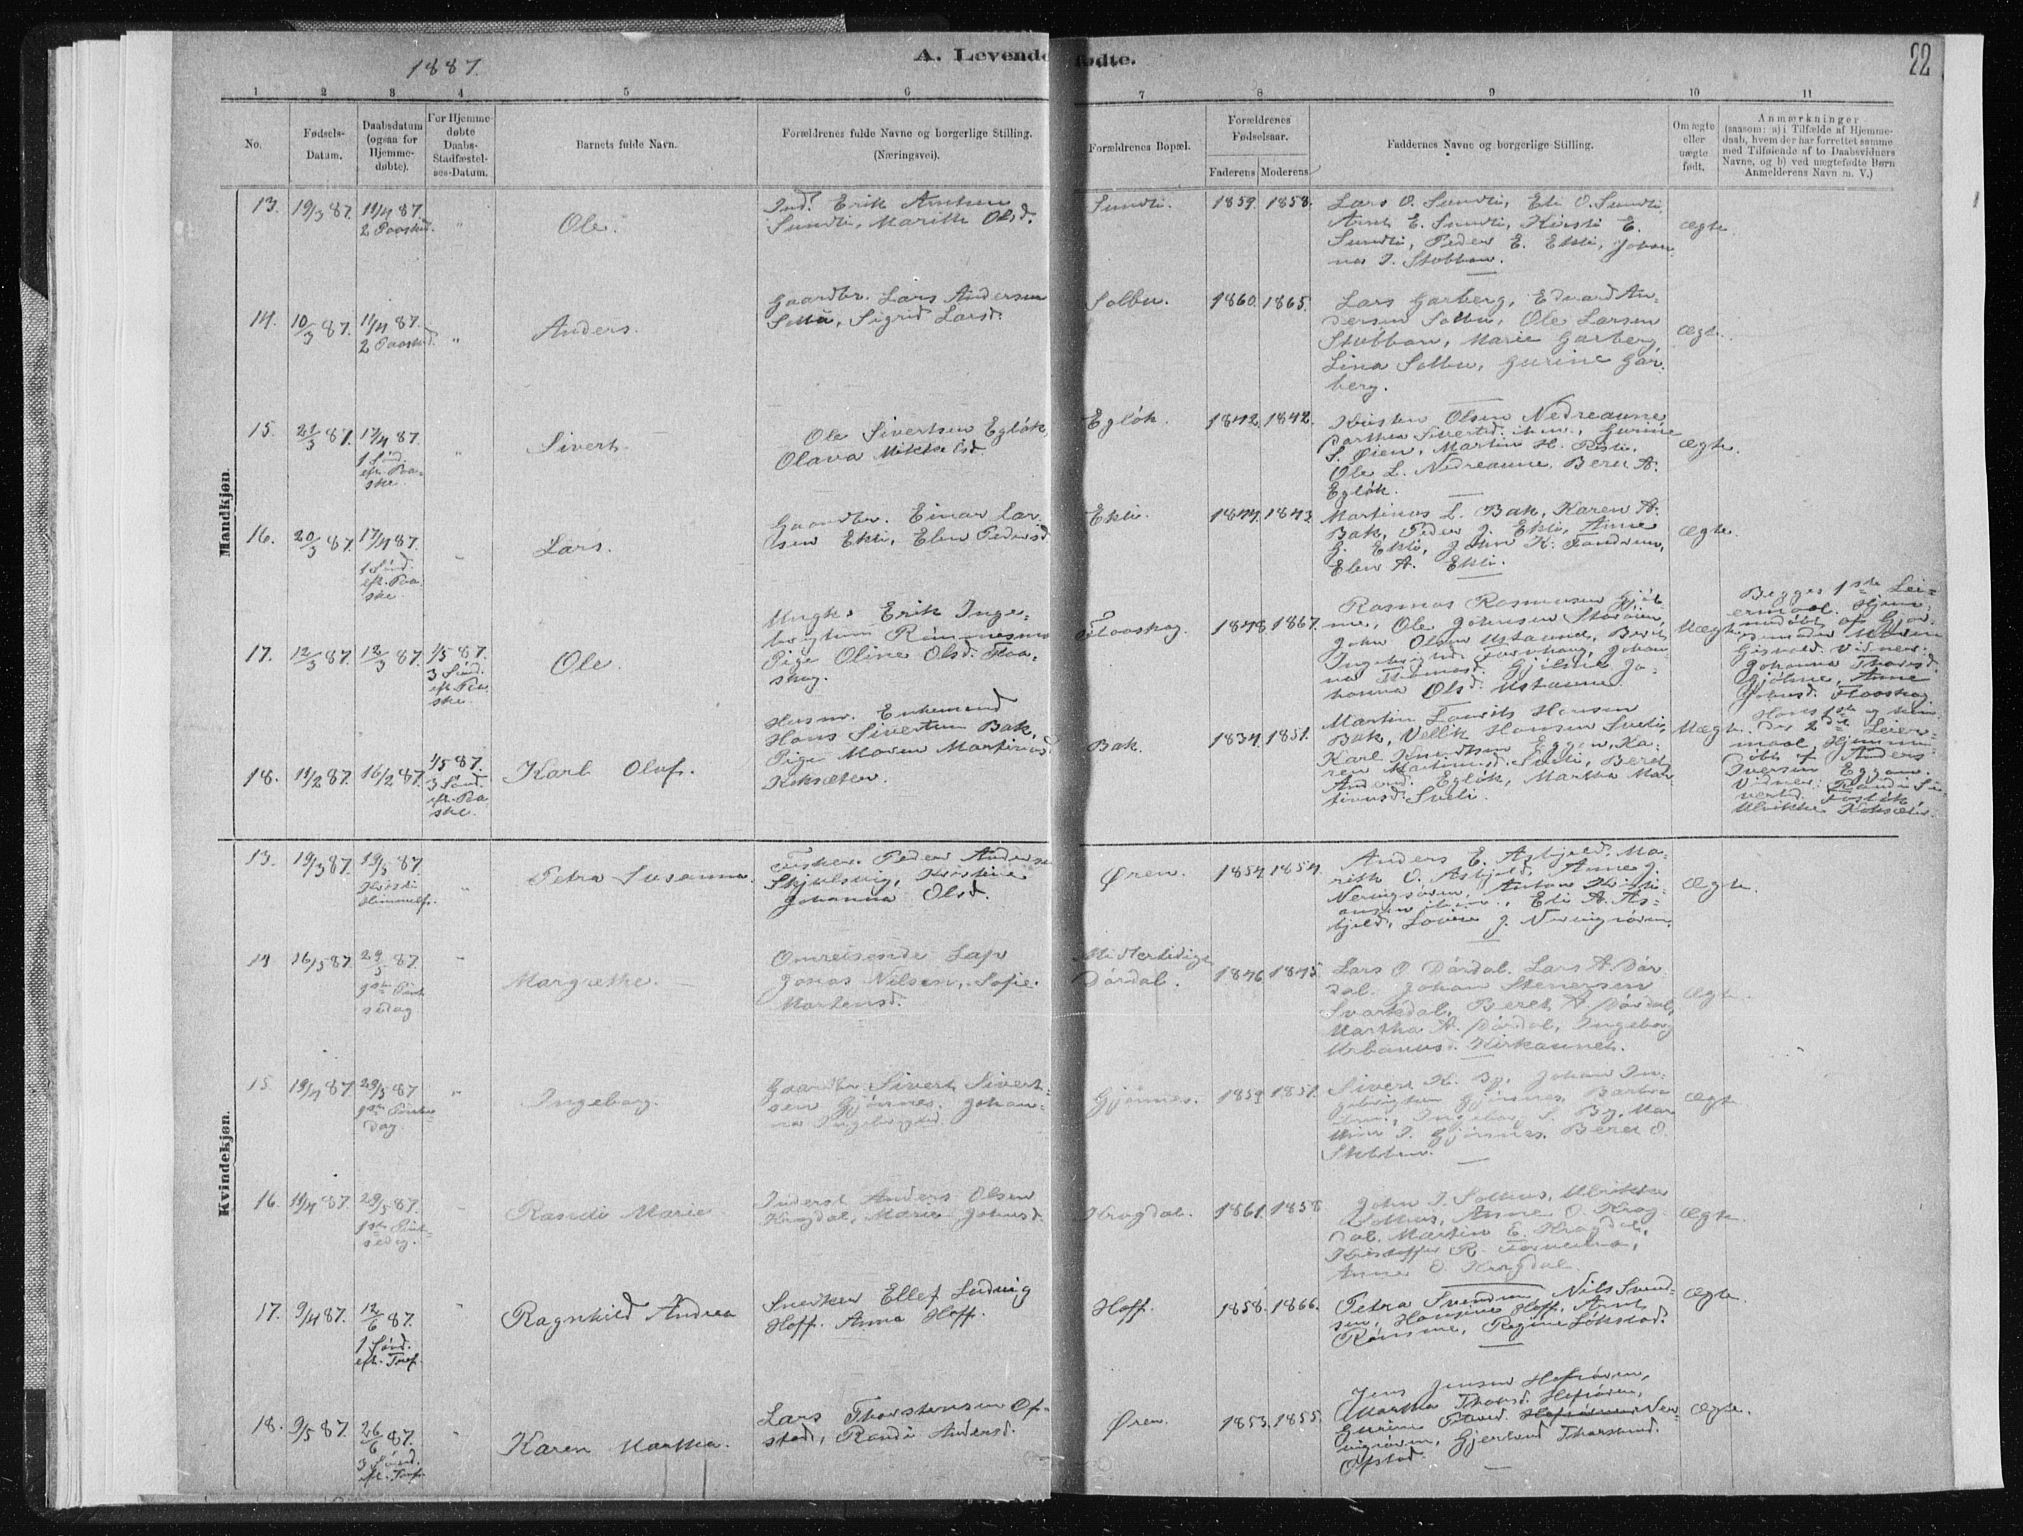 1887.
A. Levende fødte.
22
1 2 3 4 5 6 7 8 9 10 11
No.
Fødsels-
Datum.
Daabsdatum
(ogsaa for
Hjemme-
døbte).
For Hjemme-
døbte
Daabs-
Stadfæstel-
ses-Datum.
Barnets fulde Navn.
Forældrenes fulde Navne og borgerlige Stilling.
(Næringsvei).
Forældrenes Bopæl.
Forældrenes
Fødselsaar.
Faderens Moderens
Faddernes Navne og borgerlige Stilling.
Om ægte
eller
uægte
født.
Anmærkninger
(saasom: a) i Tilfælde af Hjemme-
daab, hvem der har forrettet samme
med Tilføiende af to Daabsvidners
Navne, og b) ved uægtefødte Børn
Anmelderens Navn m. V.)
Mandkjøn.
13. 19/3 87. 11/4 87.
2 Paaskd. "
Ole.
Ind. Erik Arntsen
Sundli, Marith Olsd.
Sundli. 1859. 1858.
Lars O. Sundli, Eli O. Sundli,
Arnt E. Sundli, Kirsti E.
Sundli, Peder E. Ekli, Johan-
nes J. Stobban.
Ægte.
14. 10/3 87. 11/4 87.
2 Paaskd. "
Anders.
Gaardbr. Lars Andersen
Solbu, Sigrid Larsd.
Solbu. 1860. 1865.
Lars Garberg, Edvard An-
dersen Solbu, Ole Larsen
Stobban, Marie Garberg,
Lina Solbu, Gurine Gar-
berg.
Ægte.
15. 21/3 87. 17/4 87.
1 Sønd.
eft. Paa-
ske. "
Sivert.
Ole Sivertsen Egløk,
Olava Mikkelsd.
Egløk. 1842. 1842.
Kristen Olsen Nedreaune,
Gurine
S. Øien, Martin H.
Ole L. Nedreaune, Beret A.
Egløk.
Ægte.
16. 20/3 87. 17/4 87.
1 Sønd.
eft. Paa-
ske. "
Lars.
Gaardbr. Einar Lar-
sen Ekli, Elen Pedersd.
Ekli. 1844. 1843.
Martinus L. Bak, Karen A.
Bak, Peder J. Ekli, Anne
G. Ekli, John K. Tandrum,
Elen A. Ekli.
Ægte.
17. 12/3 87. 12/3 87. 1/5 87.
3 Sønd.
eft. Paa-
ske.
Ole.
Ungk. Erik Inge-
brigtsen
Pige Oline Olsd. Floa-
skog.
Floaskog. 1848. 1867.
Rasmus Rasmusen Gjøl-
me, Ole Johnsen
John Olsen Ustaune, Beret
Ingebrigtsd. Johan-
na Thomasd. Gjølme, Jo-
hanna Olsd. Ustaune.
Uægte
Begges 1ste Lei-
ermaal. Hjem-
medøbt af Gjor-
demoder
Vidner:
Johanna Thomasd.
Gjølme, Anne
Johnsd. Floaskog
18. 11/2 87. 16/2 87. 1/5 87.
3 Sønd.
eft. Paa-
ske.
Karl Olaf.
Husm. Enkemand
Hans Sivertsen Bak,
Pige Maren Martinusd.
Keksæten.
Bak. 1834. 1851.
Martin Lauritz Hansen
Bak, Hansen Sveli,
Karl Knudtsen Eggen, Ka-
ren Martinusd. Sveli, Beret
Andersd. Egløk, Martha Mar-
tinusd. Sveli.
Uægte.
Hans 1ste og hen-
des 2det Leier-
maal. Hjemme-
døbt af Anders
Iversen Eggen.
Vidner: Randi Si-
vertsd.
Ulrikke Keksæter.
Kvindekjøn.
13. 19/3 87. 19/5 87.
Kristi
Himmelf. "
Petra Susanna.
Fisker. Peder Andersen
Skjulsvig, Kristine
Johanna Olsd.
Øren. 1854. 1854.
Anders E. Asbjeld, Ma-
rith O. Asbjeld, Anne J.
Nervigsøren, Anton Kristi-
ansen ibm., Eli A. As-
bjeld, Lovise J. Nervigsøren.
Ægte.
14 16/5 87. 29/5 87.
1ste Pint-
sedag "
Margrethe.
Omreisende Lap
Jonas Nilsen, Sofie
Mortensd.
Midlertidigt
Dørdal. 1846 1845
Lars O Dørdal, Lars A. Dør-
dal, Johan Stenersen
Svorkdal, Beret A. Dørdal,
Martha A. Dørdal, Ingeborg
Urbanusd. Kirkaunet.
Ægte.
15 19/4 87. 29/5 87
1ste Pintse-
dag. "
Ingeborg.
Gaardbr. Sivert Sivert-
sen Gjønnes, Johan-
na Ingebrigtsd.
Gjønnes. 1859 1851.
Sivert K. By, Johan In-
gebrigtsen Gjønnes, Barbra
Ingeborg S. By, Mar-
J. Gjønnes, Beret O.
Stobban.
Ægte
16 11/4 87. 29/5 87.
1ste Pint-
sedag. "
Randi Marie.
Inderst Anders Olsen
Krogdal, Marie Johnsd.
Krogdal. 1861. 1858
John J. Solhus, Ulrikke
Solhus, Anne O. Krog-
dal, Martin E. Krogdal,
Kristoffer R.
Anne O. Krogdal.
Ægte.
17. 9/4 87. 12/6 87.
1 Sønd.
eft. Tref. "
Ragnhild Andrea
Snedker Ellef Ludvig
Hoff, Anna Hoff.
Hoff. 1858. 1866.
Petra Svendsen, Nils Svend-
sen, Hansine Hoff, Arnt
Rømme, Regine Løkstad.
Ægte.
18. 9/5 87. 26/6 87.
3 Sønd.
eft. Tref. "
Karen Martha.
Lars Thorstensen Of-
stad, Randi Andersd.
Øren. 1853. 1855.
Jens Jensen Hofsøren,
Martha Thorsd. Hofsøren,
Gurine Hofsøren Ner-
vigsøren, Gjertrud Thorsund.
Ofstad.
Ægte.